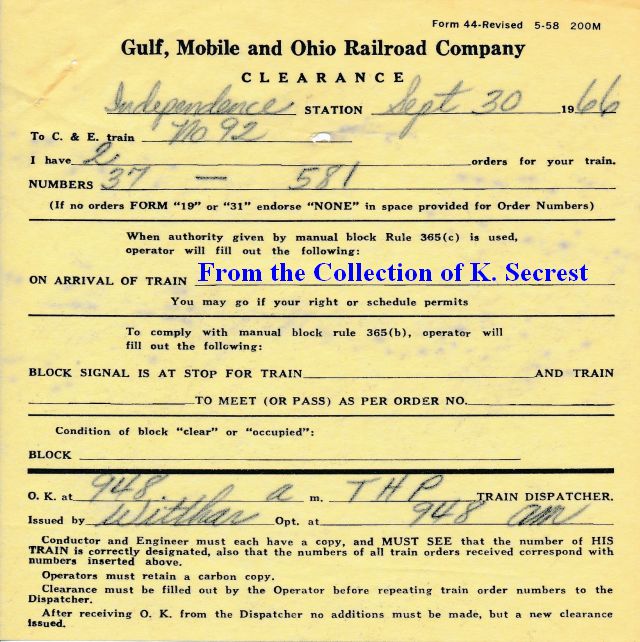 Form 44-Revised 5-58 200M
Gulf, Mobile and Ohio Railroad Company
CLEARANCE
Independence STATION Sept 30 1966
To C. & E. train No 92
I have 2 orders for your train.
NUMBERS 37 — 581
(If no orders FORM "19" or "31" endorse "NONE" in space provided for Order Numbers)
When authority given by manual block Rule 365(c) is used,
operator will fill out the following:
ON ARRIVAL OF TRAIN From the Collection of K. Secrest
You may go if your right or schedule permits
To comply with manual block rule 365(b), operator will
fill out the following:
BLOCK SIGNAL IS AT STOP FOR TRAIN AND TRAIN
TO MEET (OR PASS) AS PER ORDER NO.
Condition of block "clear" or "occupied":
BLOCK
O. K. at 948 a m. THP TRAIN DISPATCHER.
Issued by Witthar Opt. at 948 am
Conductor and Engineer must each have a copy, and MUST SEE that the number of HIS
TRAIN is correctly designated, also that the numbers of all train orders received correspond with
numbers inserted above.
Operators must retain a carbon copy.
Clearance must be filled out by the Operator before repeating train order numbers to the
Dispatcher.
After receiving O. K. from the Dispatcher no additions must be made, but a new clearance
issued.